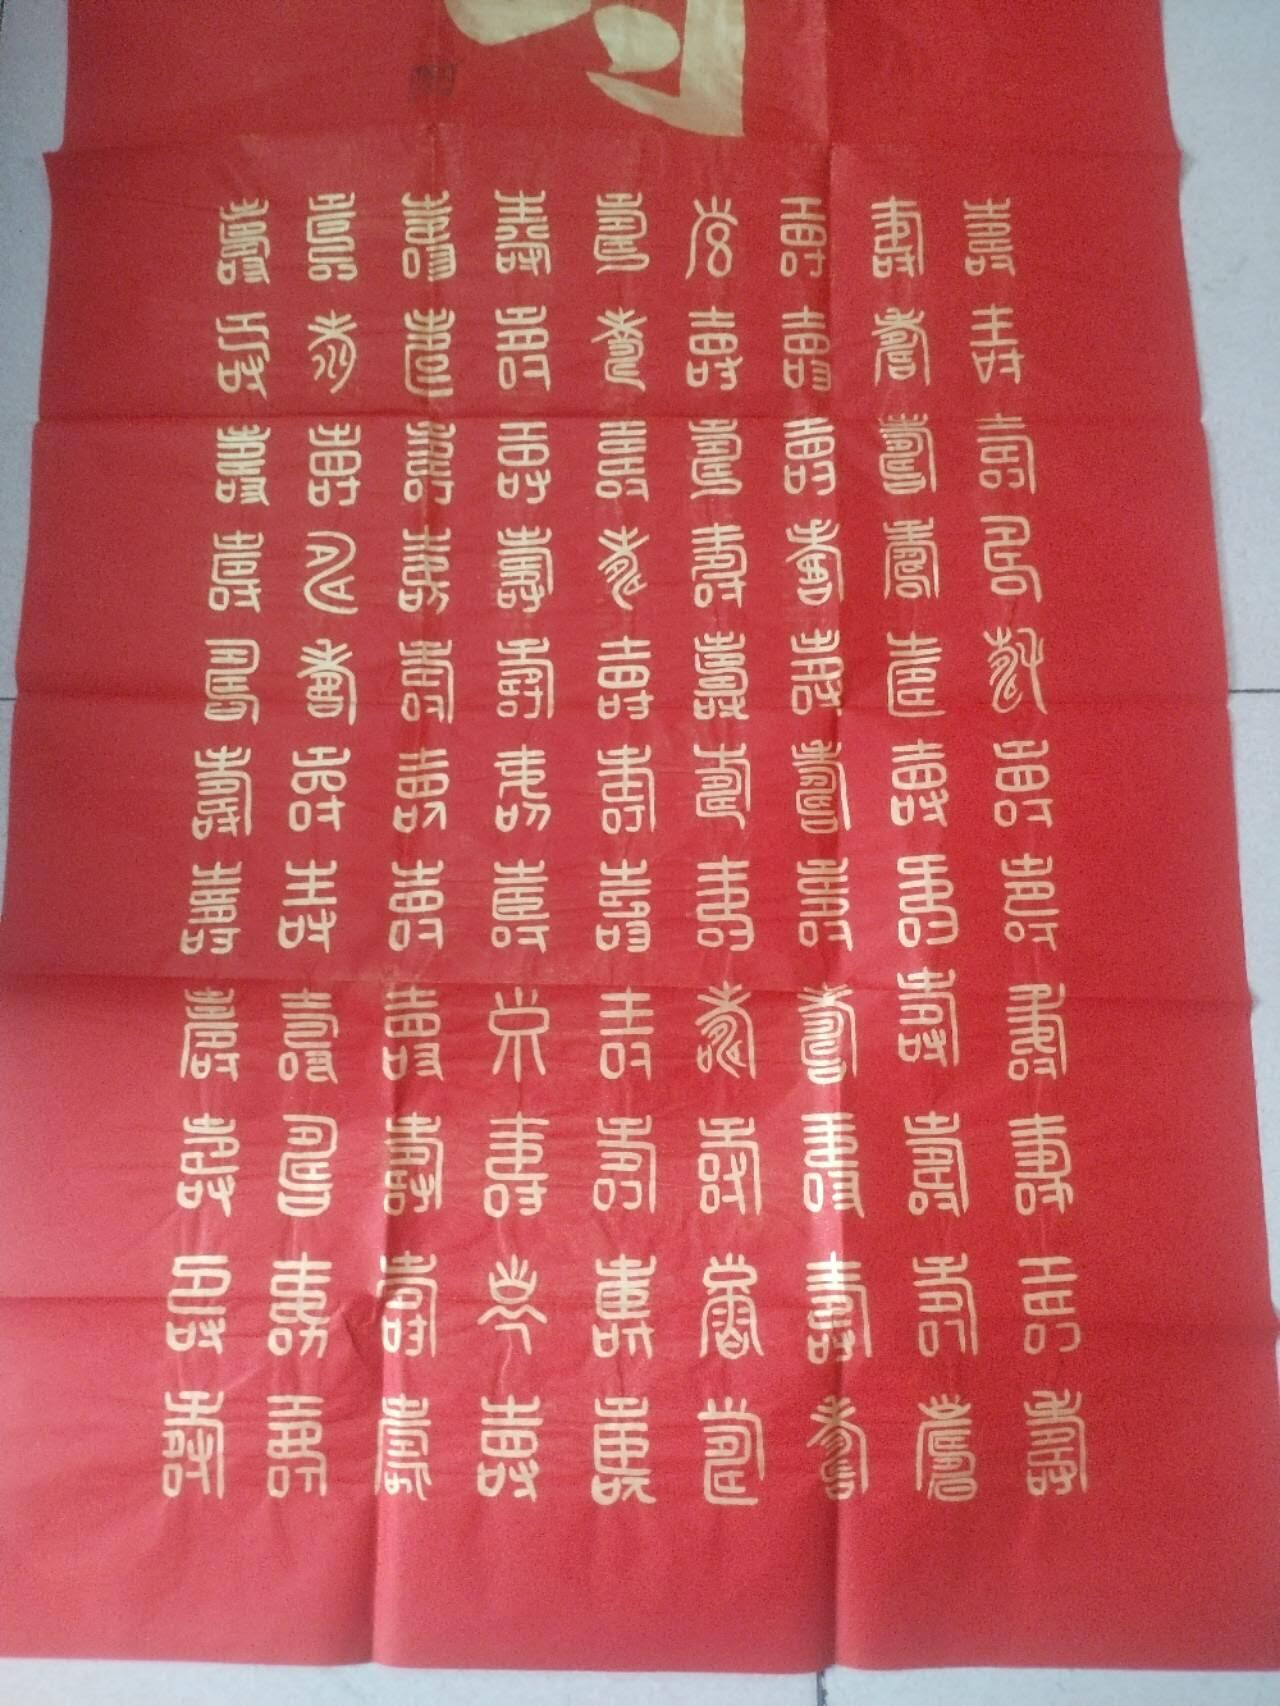 壽壽壽壽壽壽壽壽壽壽壽
壽壽壽壽壽壽壽壽壽壽壽
壽壽壽壽壽壽壽壽壽壽壽
壽壽壽壽壽壽壽壽壽壽壽
壽壽壽壽壽壽壽壽壽壽壽
壽壽壽壽壽壽壽壽壽壽壽
壽壽壽壽壽壽壽壽壽壽壽
壽壽壽壽壽壽壽壽壽壽壽
壽壽壽壽壽壽壽壽壽壽壽